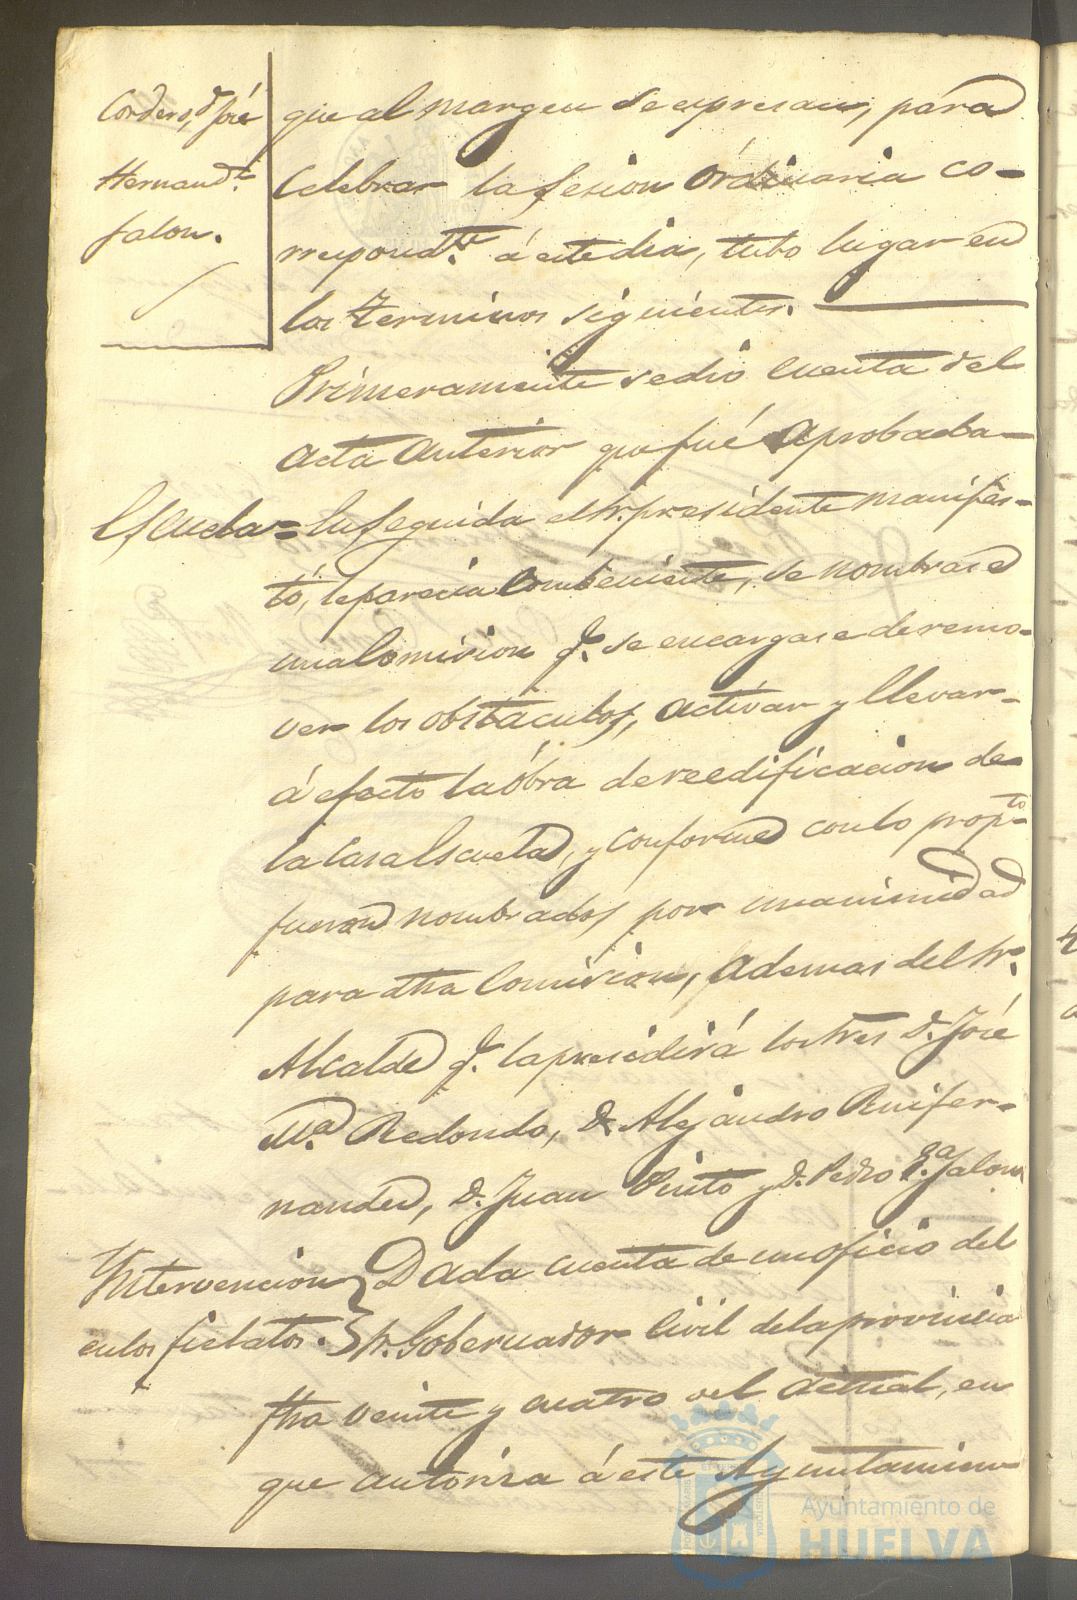 Cordero, d José
Hernand.z
Jalon.
que al margen se expresan, para
Celebrar la sesion Ordinaria co-
rrespond.te á este dia, tubo lugar en
los terminos siguientes.
Primeramente se dió cuenta del
acta anterior que fué aprobada
Escuela = En seguida el Sr. presidente manifes-
tó, le parecia combeniente, se nombrase
una Comision q.e se encargase de remo-
ver los obstaculos, activar y llevar
á efecto la óbra de reedificacion de
la Casa Escuela, y conforme con lo prop.to
fueron nombrados por unanimidad
para dha Comision, Ademas del Sr.
Alcalde q.e la presidirá los Sres D. José
M.a Redondo, D. Alejandro Ruifer-
nandez, D. Juan Pinto y D. Pedro G.a Jalon
Intervencion
en los fielatos.
Dada cuenta de un oficio del
Sr. Gobernador Civil de la provincia
fha veinte y cuatro del actual, en
que autoriza á este Ayuntamien-
Ayuntamiento de
HUELVA